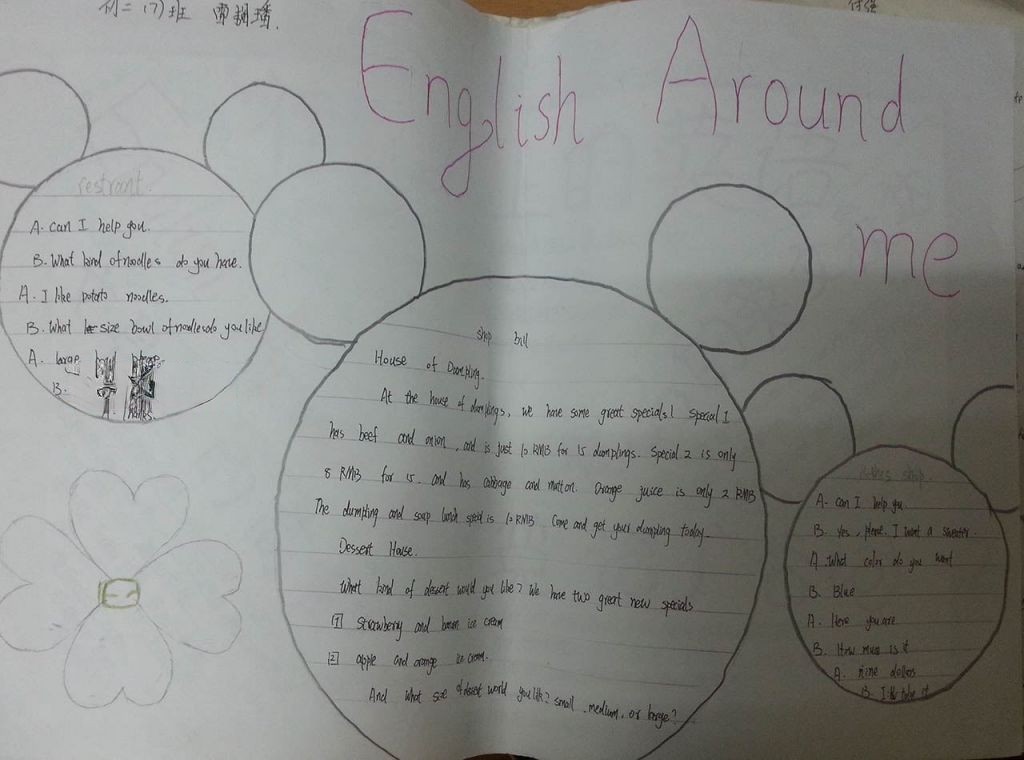 English Around
me
restrant.
A. can I help you.
B. What kind of noodles do you have.
A. I like potato noodles.
B. What size bowl of noodles do you like
A. large
B.
ship bill
House of Dumpling.
At the house of dumplings, we have some great specials! Special 1
has beef and onion, and is just 10 RMB for 15 dumplings. Special 2 is only
8 RMB for 15. and has cabbage and mutton. Orange juice is only 2 RMB
The dumpling and soup lunch special is 10 RMB Come and get your dumpling today.
Dessert House.
What kind of dessert would you like? We have two great new specials
[1] Strawberry and ice cream
[2] apple and orange ice cream.
And what size of desert would you like? small, medium, or large?
clothes shop.
A. can I help you.
B. yes. please. I want a sweater.
A. What color do you want
B. Blue
A. Here you are
B. How much is it
A. nine dollars
B. I'll take it